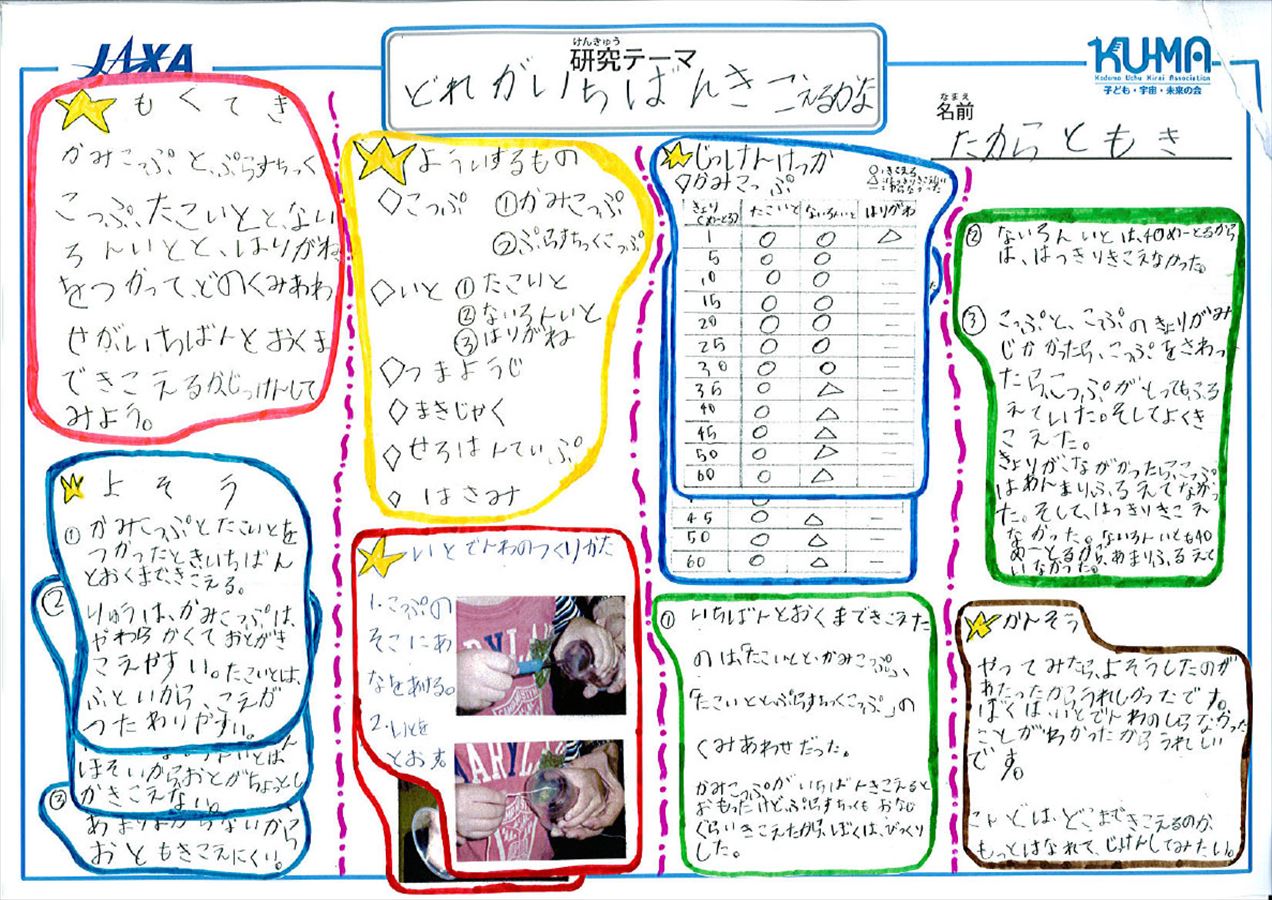 JAXA
けんきゅう
研究テーマ
どれがいちばんきこえるかな
KU-MA
Kodomo Uchu Mirai Association
子ども・宇宙・未来の会
なまえ
名前
たからともき
もくてき
かみこっぷとぷらすちっく
こっぷ、たこいとと、ない
ろんいとと、はりがね
をつかって、どのくみあわ
せがいちばんとおくま
できこえるかじっけんして
みよう。
よそう
①かみこっぷとたこいとを
つかったときいちばん
とおくまできこえる。
りゆうは、かみこっぷは、
やわらかくておとがき
こえやすい。たこいとは、
ふといから、こえが
つたわりやすい。
②
ほそいからおとがちょっとし
かきこえない。
③
あまりよからないから
おともきこえにくい。
よういするもの
◇こっぷ ①かみこっぷ
②ぷらすちっくこっぷ
◇いと ①たこいと
②ないろんいと
③はりがね
◇つまようじ
◇まきじゃく
◇せろはんてぃぷ
◇はさみ
いとでんわのつくりかた
1.こっぷの
そこにあ
なをあける。
2.いとを
とおす
MARYLAND
じっけんけっか
◇かみこっぷ
○:きこえる
きょり(めーとる) たこいと ないろんいと はりがね
1 ○ ○ △
5 ○ ○ －
10 ○ ○ －
15 ○ ○ －
20 ○ ○ －
25 ○ ○ －
30 ○ ○ －
35 ○ △ －
40 ○ △ －
45 ○ △ －
50 ○ △ －
60 ○ △ －
45 ○ △ －
50 ○ △ －
60 ○ △ －
①いちばんとおくまできこえた
のは、「たこいとと、かみこっぷ」、
「たこいととぷらすちっくこっぷ」の
くみあわせだった。
かみこっぷがいちばんきこえると
おもっただけど、ぷらすちっくもおなじ
ぐらいきこえたから、ぼくは、びっくり
した。
②ないろんいとは、40めーとるから
は、はっきりきこえなかった。
③こっぷと、こっぷのきょりがみ
じかかったら、こっぷをさわっ
たらこっぷがとってもふる
えていた。そしてよくき
こえた。
きょりがながかったらこっぷ
はあんまりふるえてなかっ
た。そして、はっきりきこえ
なかった。ないろんいとも40
めーとるから、あまりふるえて
いなかった。
かんそう
やってみたら、よそうしたのが
あたったからうれしかったです。
ぼくは、いとでんわのしらなかった
ことがわかったからうれしい
です。
こんどは、どこまできこえるのか、
もっとはなれて、じっけんしてみたい。